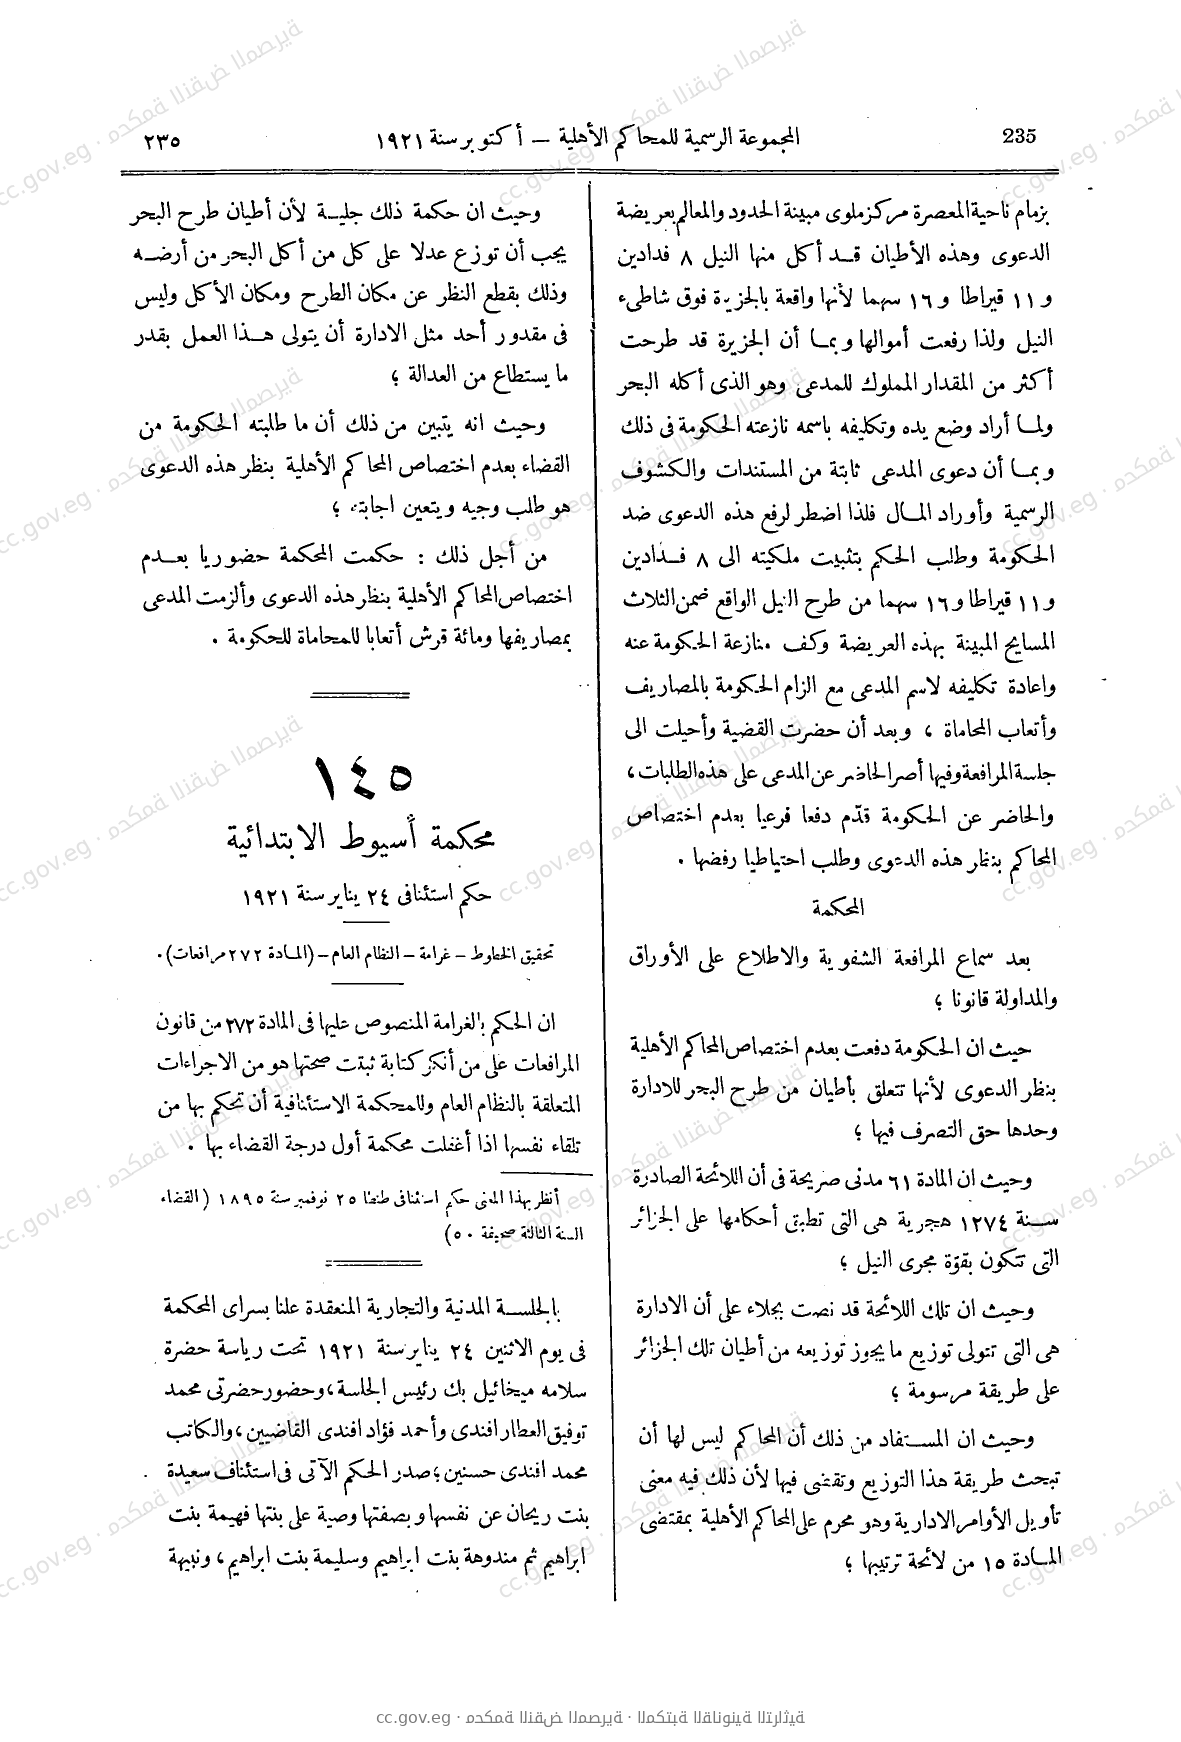 235
المجموعة الرسمية للمحاكم الأهلية — أكتوبر سنة ١٩٢١
٢٣٥
بزمام ناحية المعصرة مركز ملوى مبينة الحدود والمعالم بعريضة
الدعوى وهذه الأطيان قد أكل منها النيل ٨ فدادين
و ١١ قيراطا و ١٦ سهما لأنها واقعة بالجزيرة فوق شاطىء
النيل ولذا رفعت أموالها وبما أن الجزيرة قد طرحت
أكثر من المقدار المملوك للمدعى وهو الذى أكله البحر
ولما أراد وضع يده وتكليفه باسمه نازعته الحكومة فى ذلك
وبما أن دعوى المدعى ثابتة من المستندات والكشوف
الرسمية وأوراد المال فلذا اضطر لرفع هذه الدعوى ضد
الحكومة وطلب الحكم بتثبيت ملكيته الى ٨ فدادين
و ١١ قيراطا و ١٦ سهما من طرح النيل الواقع ضمن الثلاث
المسايح المبينة بهذه العريضة وكف منازعة الحكومة عنه
واعادة تكليفه لاسم المدعى مع الزام الحكومة بالمصاريف
وأتعاب المحاماة ، وبعد أن حضرت القضية وأحيلت الى
جلسة المرافعة وفيها أصر الحاضر عن المدعى على هذه الطلبات ،
والحاضر عن الحكومة قدّم دفعا فرعيا بعدم اختصاص
المحاكم بنظر هذه الدعوى وطلب احتياطيا رفضها .
المحكمة
بعد سماع المرافعة الشفوية والاطلاع على الأوراق
والمداولة قانونا ؛
حيث ان الحكومة دفعت بعدم اختصاص المحاكم الأهلية
بنظر الدعوى لأنها تتعلق بأطيان من طرح البحر للادارة
وحدها حق التصرف فيها ؛
وحيث ان المادة ٦١ مدنى صريحة فى أن اللائحة الصادرة
سنة ١٢٧٤ هجرية هى التى تطبق أحكامها على الجزائر
التى تتكون بقوّة مجرى النيل ؛
وحيث ان تلك اللائحة قد نصت بجلاء على أن الادارة
هى التى تتولى توزيع ما يجوز توزيعه من أطيان تلك الجزائر
على طريقة مرسومة ؛
وحيث ان المستفاد من ذلك أن المحاكم ليس لها أن
تبحث طريقة هذا التوزيع وتقضى فيها لأن ذلك فيه معنى
تأويل الأوامر الادارية وهو محرم على المحاكم الأهلية بمقتضى
المادة ١٥ من لائحة ترتيبها ؛
وحيث ان حكمة ذلك جلية لأن أطيان طرح البحر
يجب أن توزع عدلا على كل من أكل البحر من أرضه
وذلك بقطع النظر عن مكان الطرح ومكان الأكل وليس
فى مقدور أحد مثل الادارة أن يتولى هذا العمل بقدر
ما يستطاع من العدالة ؛
وحيث انه يتبين من ذلك أن ما طلبته الحكومة من
القضاء بعدم اختصاص المحاكم الأهلية بنظر هذه الدعوى
هو طلب وجيه ويتعين اجابته ؛
من أجل ذلك : حكمت المحكمة حضوريا بعدم
اختصاص المحاكم الأهلية بنظر هذه الدعوى وألزمت المدعى
بمصاريفها ومائة قرش أتعابا للمحاماة للحكومة .
١٤٥
محكمة أسيوط الابتدائية
حكم استئنافى ٢٤ يناير سنة ١٩٢١
تحقيق الخطوط – غرامة – النظام العام – (المادة ٢٧٢ مرافعات) .
ان الحكم بالغرامة المنصوص عليها فى المادة ٢٧٢ من قانون
المرافعات على من أنكر كتابة ثبتت صحتها هو من الاجراءات
المتعلقة بالنظام العام وللمحكمة الاستئنافية أن تحكم بها من
تلقاء نفسها اذا أغفلت محكمة أول درجة القضاء بها .
أنظر بهذا المعنى حكم استئنافى طنطا ٢٥ نوفمبر سنة ١٨٩٥ (القضاء
السنة الثالثة صحيفة ٥٠)
بالجلسة المدنية والتجارية المنعقدة علنا بسراى المحكمة
فى يوم الاثنين ٢٤ يناير سنة ١٩٢١ تحت رياسة حضرة
سلامه ميخائيل بك رئيس الجلسة ، وحضور حضرتى محمد
توفيق العطار افندى وأحمد فؤاد افندى القاضيين ، والكاتب
محمد افندى حسنين ؛ صدر الحكم الآتى فى استئناف سعيدة
بنت ريحان عن نفسها وبصفتها وصية على بنتها فهيمة بنت
ابراهيم ثم مندوهة بنت ابراهيم وسليمة بنت ابراهيم ، ونبيهة
cc.gov.eg · محكمة النقض المصرية · المكتبة القانونية التراثية